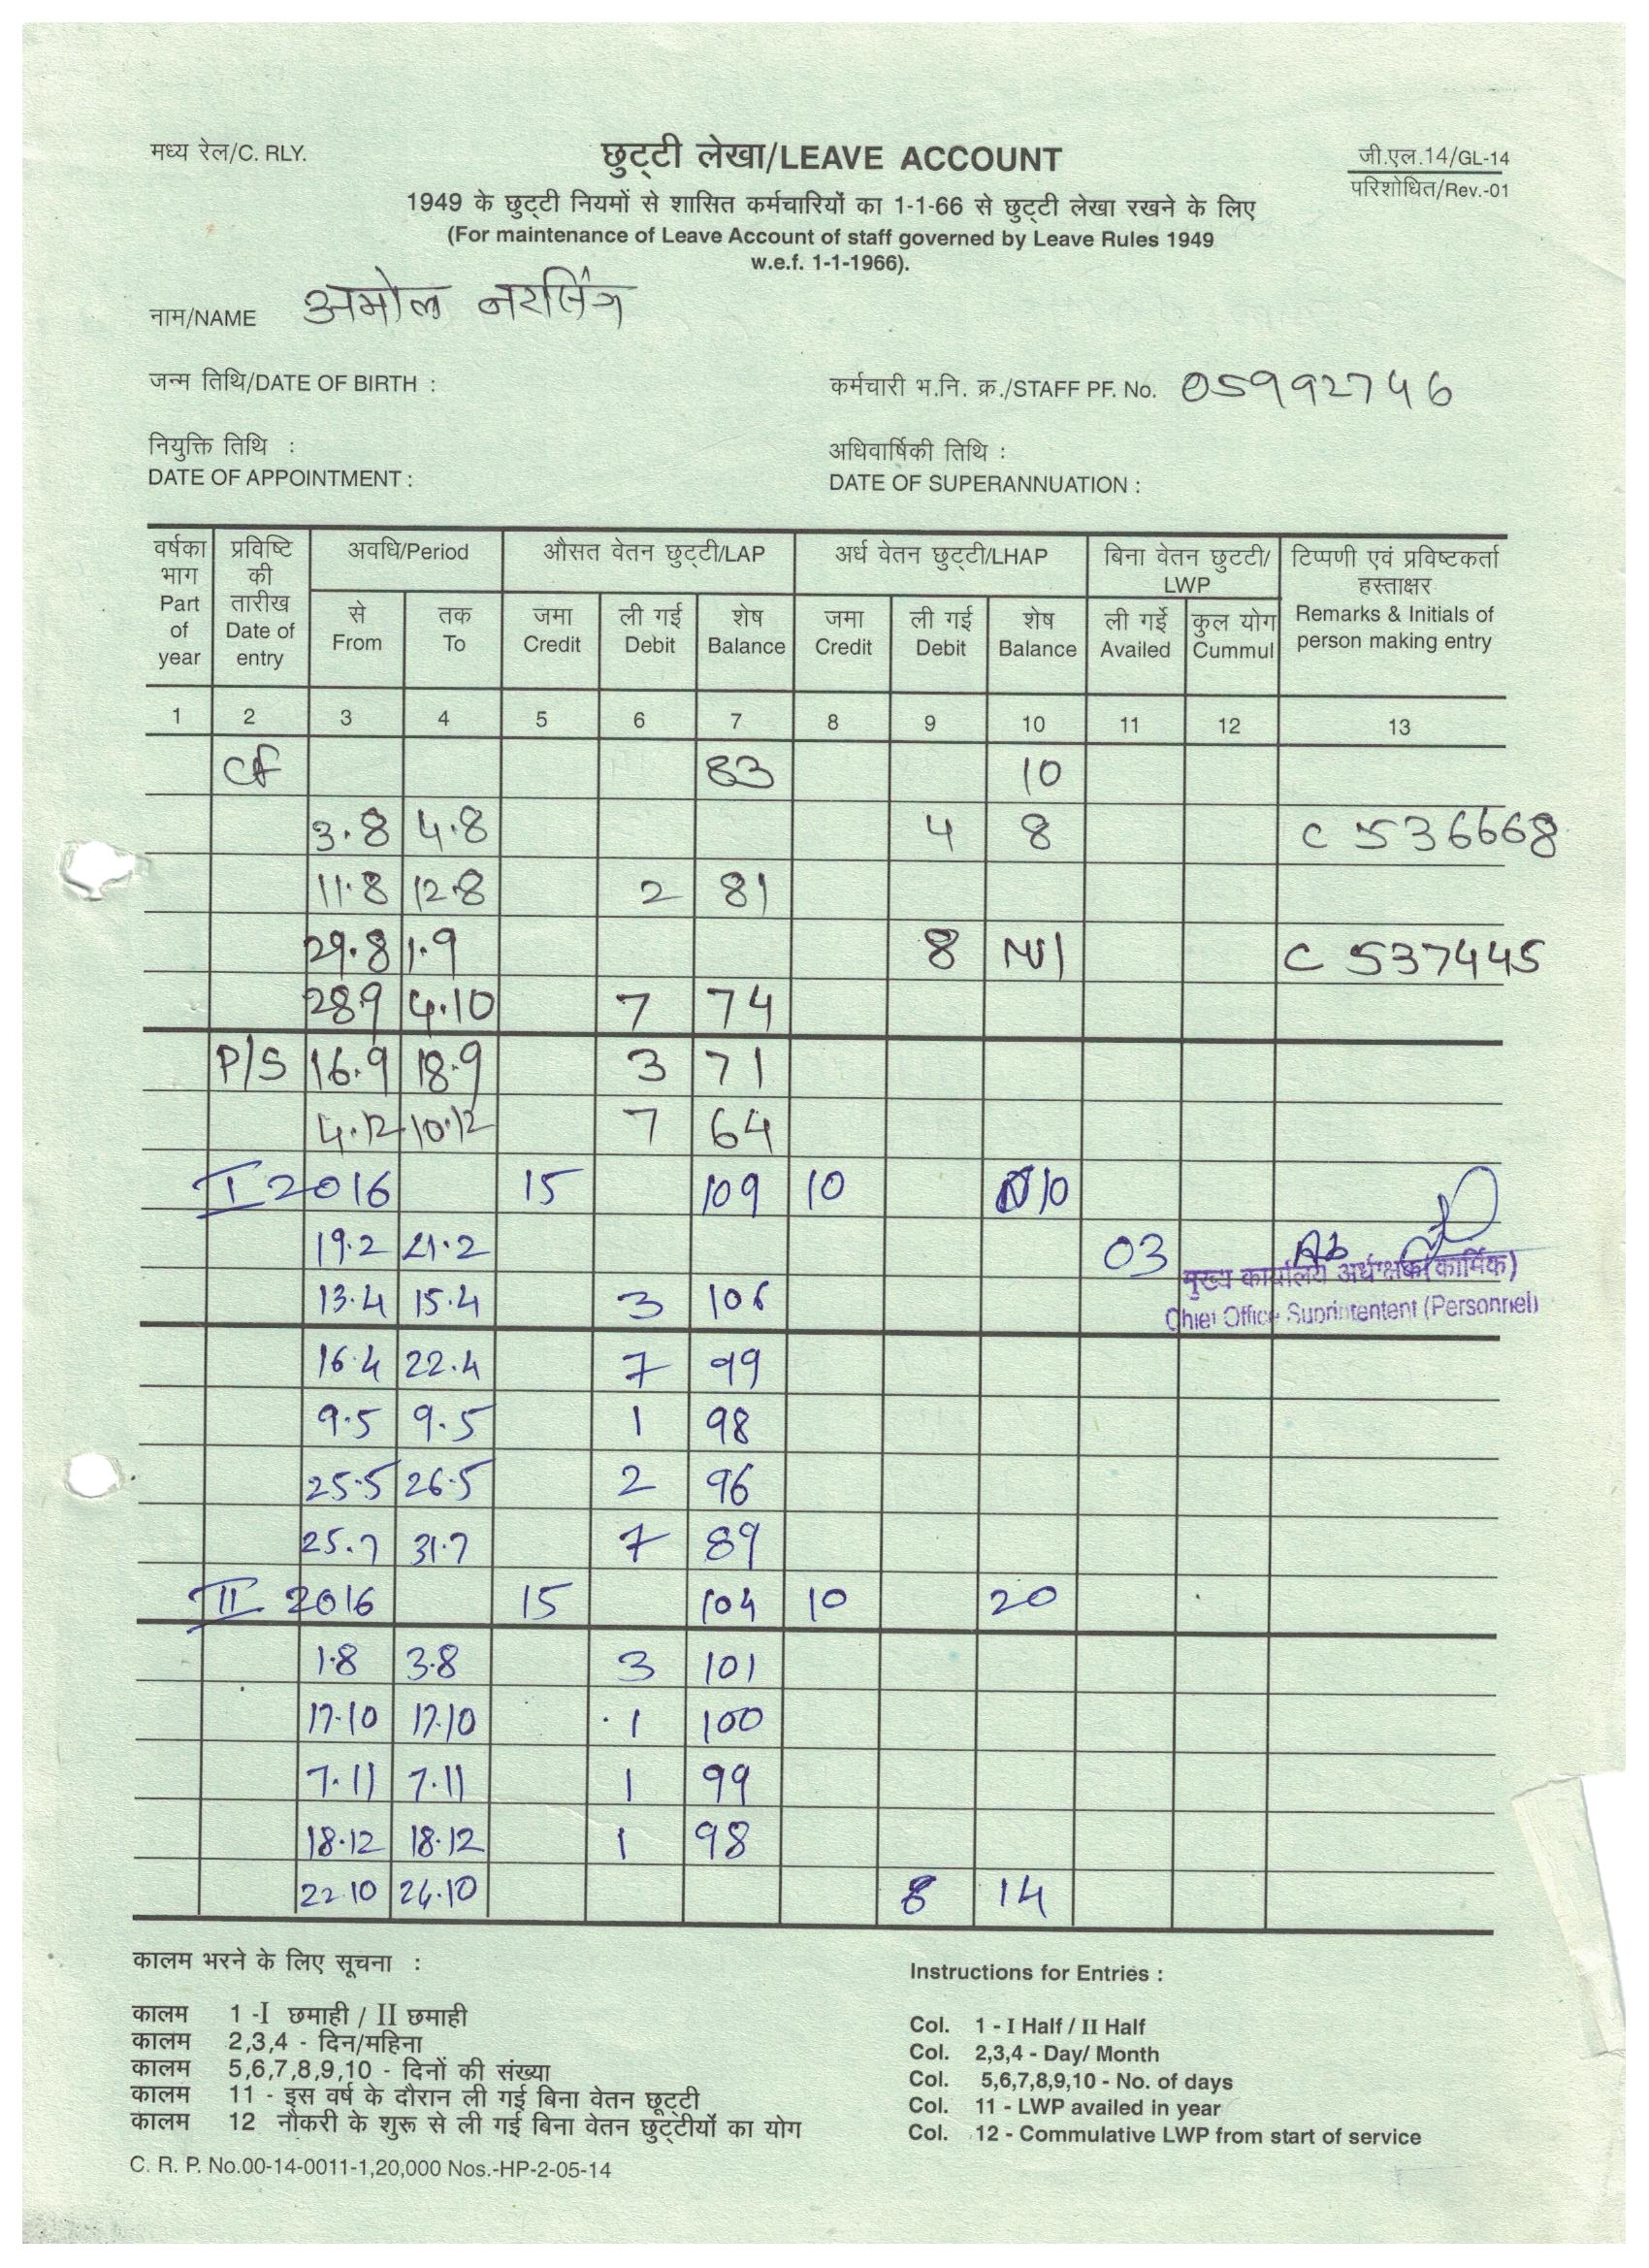 मध्य रेल/C. RLY.
छुट्टी लेखा/LEAVE ACCOUNT
जी.एल.14/GL-14
परिशोधित/Rev.-01
1949 के छुट्टी नियमों से शासित कर्मचारियों का 1-1-66 से छुट्टी लेखा रखने के लिए
(For maintenance of Leave Account of staff governed by Leave Rules 1949
w.e.f. 1-1-1966).
नाम/NAME अमोल नरसिंग
जन्म तिथि/DATE OF BIRTH :
कर्मचारी भ.नि. क्र./STAFF PF. No. 05992746
नियुक्ति तिथि :
DATE OF APPOINTMENT :
अधिवार्षिकी तिथि :
DATE OF SUPERANNUATION :
वर्षका भाग Part of year
प्रविष्टि की तारीख Date of entry
अवधि/Period
से From
तक To
औसत वेतन छुट्टी/LAP
जमा Credit
ली गई Debit
शेष Balance
अर्ध वेतन छुट्टी/LHAP
जमा Credit
ली गई Debit
शेष Balance
बिना वेतन छुटटी/ LWP
ली गईे Availed
कुल योग Cummul
टिप्पणी एवं प्रविष्टकर्ता हस्ताक्षर
Remarks & Initials of person making entry
1 2 3 4 5 6 7 8 9 10 11 12 13
Cf 83 10
3.8 4.8 4 8 C 536668
11.8 12.8 2 81
29.8 1.9 8 Nil C 537445
28.9 4.10 7 74
P/S 16.9 18.9 3 71
4.12 10.12 7 64
I 2016 15 109 10 10
19.2 21.2 03
मुख्य कार्यालय अधीक्षक (कार्मिक)
13.4 15.4 3 106
Chief Office Suprintentent (Personnel)
16.4 22.4 7 99
9.5 9.5 1 98
25.5 26.5 2 96
25.7 31.7 7 89
II 2016 15 104 10 20
1.8 3.8 3 101
17.10 17.10 1 100
7.11 7.11 1 99
18.12 18.12 1 98
22.10 24.10 8 14
कालम भरने के लिए सूचना :
कालम 1 -I छमाही / II छमाही
कालम 2,3,4 - दिन/महिना
कालम 5,6,7,8,9,10 - दिनों की संख्या
कालम 11 - इस वर्ष के दौरान ली गई बिना वेतन छूट्टी
कालम 12 नौकरी के शुरू से ली गई बिना वेतन छुट्टीयों का योग
Instructions for Entries :
Col. 1 - I Half / II Half
Col. 2,3,4 - Day/ Month
Col. 5,6,7,8,9,10 - No. of days
Col. 11 - LWP availed in year
Col. 12 - Commulative LWP from start of service
C. R. P. No.00-14-0011-1,20,000 Nos.-HP-2-05-14